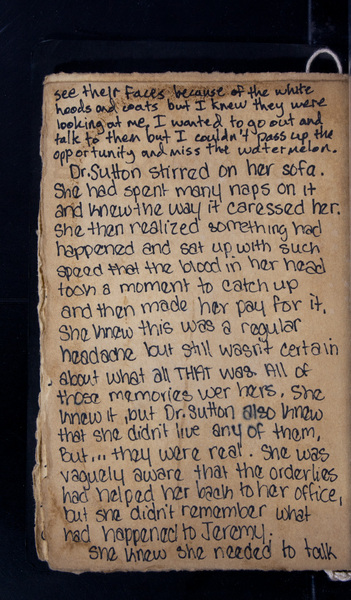 see their faces because of the white
hoods and coats but I knew they were
looking at me, I wanted to go out and
talk to them but I couldn't pass up the
opportunity and miss the watermelon.
Dr. Sutton stirred on her sofa.
She had spent many naps on it
and knew the way it caressed her.
She then realized something had
happened and sat up with such
speed that the blood in her head
took a moment to catch up
and then made her pay for it.
She knew this was a regular
headache but still wasn't certain
about what all THAT was. All of
those memories wer hers. She
knew it, but Dr. Sutton also knew
that she didn't live any of them,
But... they were real. She was
vaguely aware that the orderlies
had helped her back to her office,
but she didn't remember what
had happened to Jeremy.
She knew she needed to talk